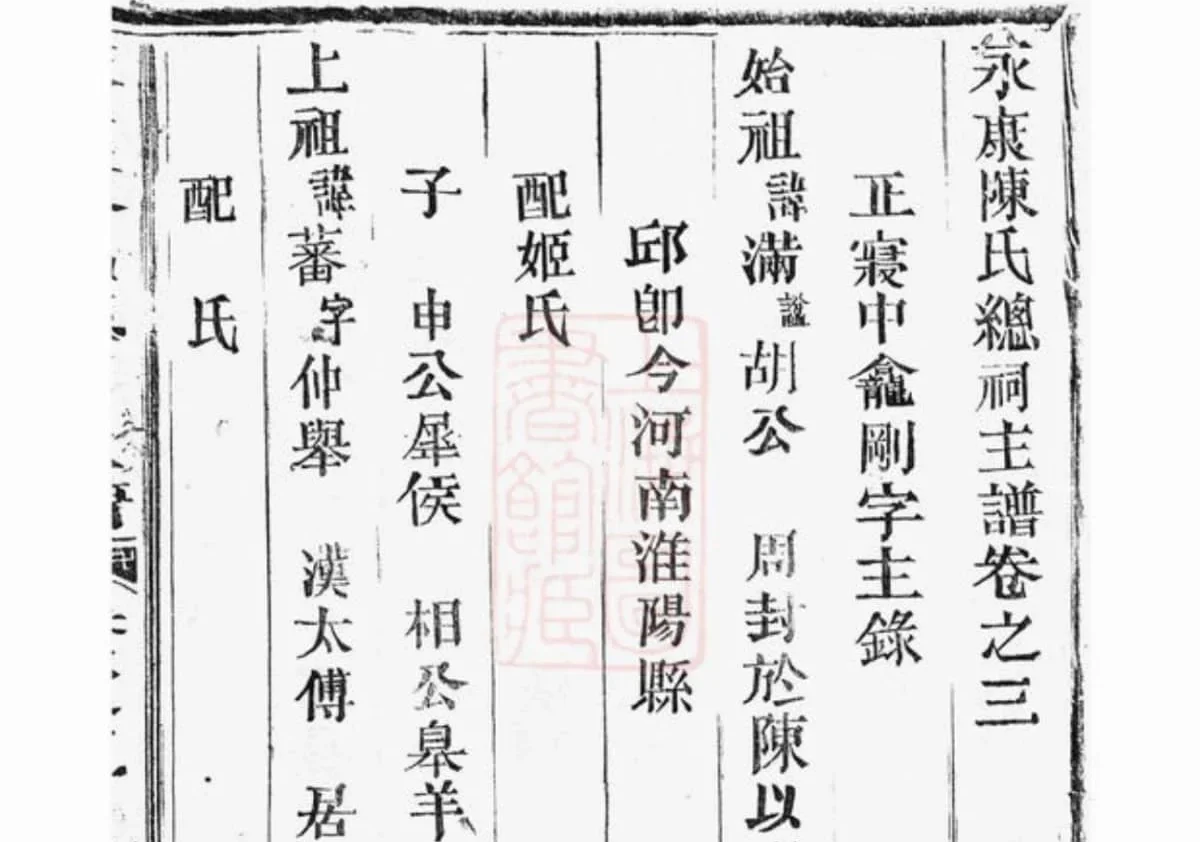 永康陳氏總祠主譜卷之三
正寢中龕剛字主錄
始祖諱滿諡胡公 周封於陳以
邱卽今河南淮陽縣
配姬氏
子 申公犀侯 相公臯羊
上祖諱蕃字仲舉 漢太傅 居
配 氏
上海圖書館藏